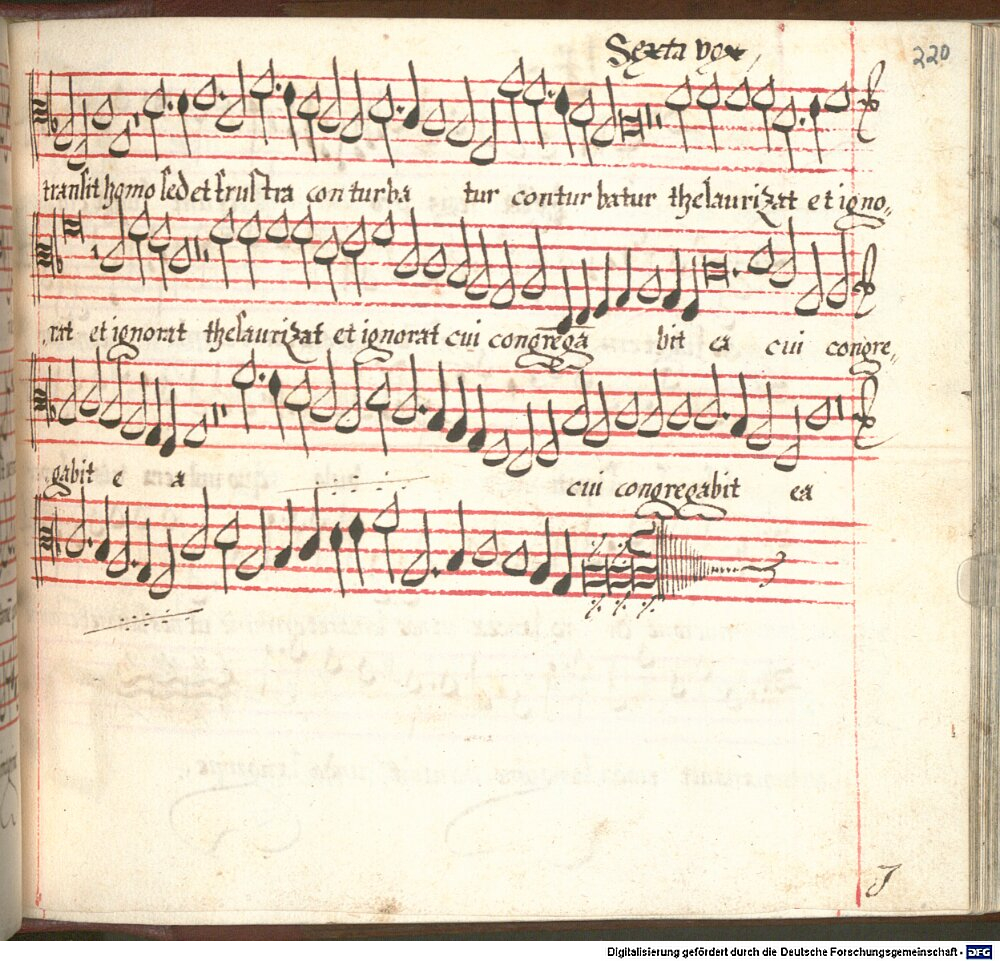 Sexta vox,
220
transit homo sed et frustra conturba tur conturbatur thesaurizat et igno„
rat et ignorat thesaurizat et ignorat cui congrega bit ea cui congre„
gabit e a cui congregabit ea
Digitalisierung gefördert durch die Deutsche Forschungsgemeinschaft - DFG